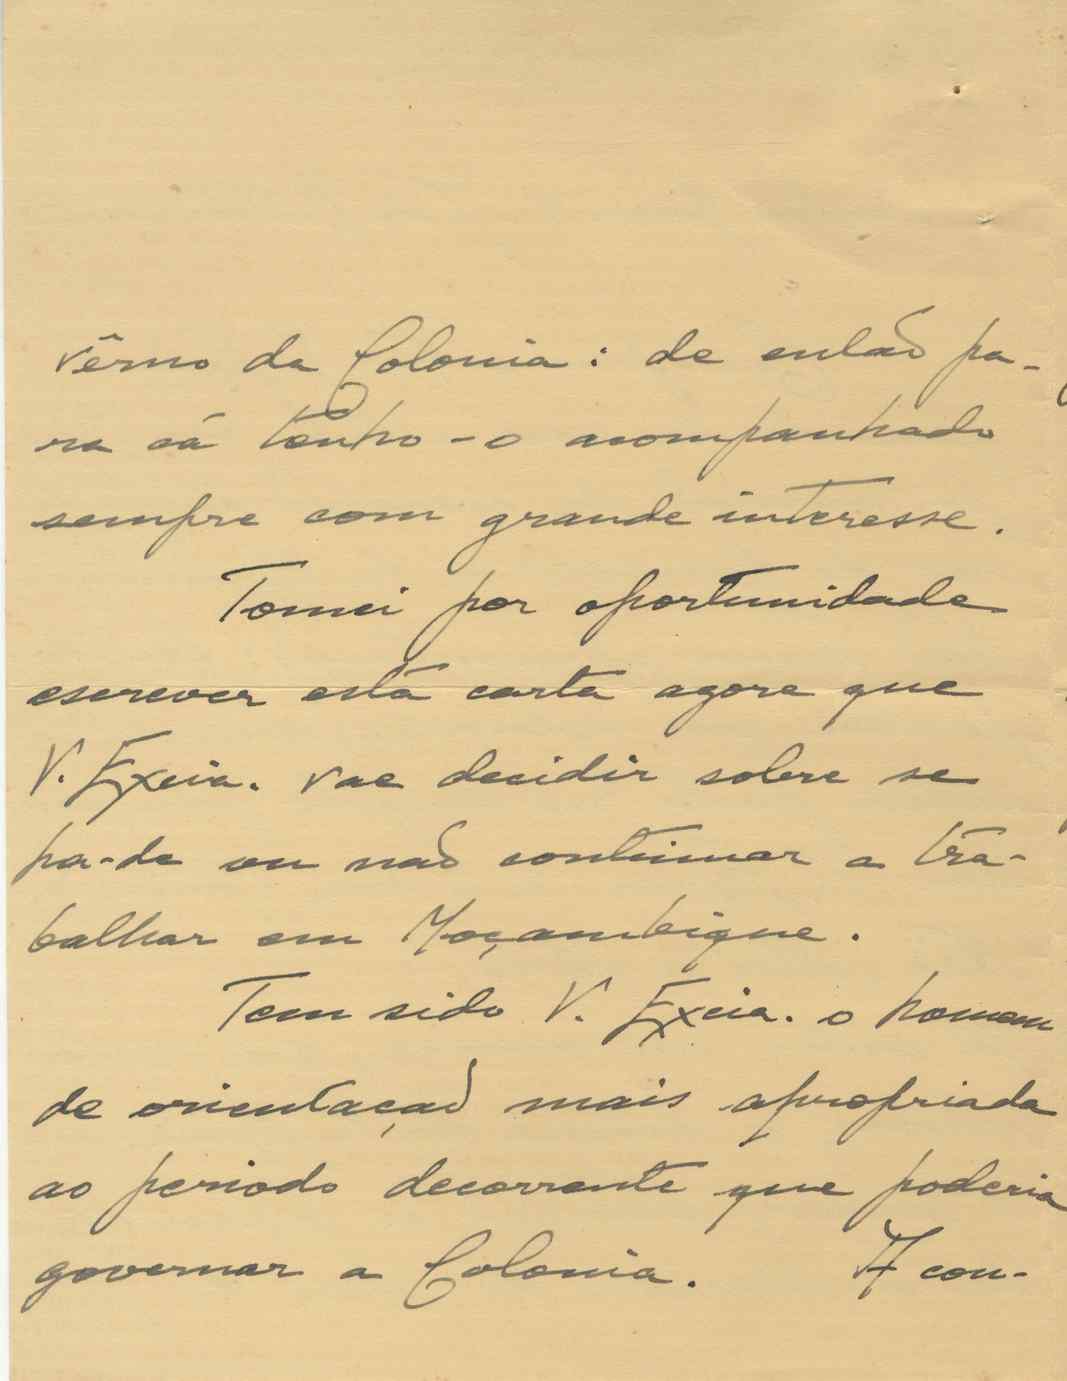 vêrno da Colonia: de então pa-
ra cá tenho-o acompanhado
sempre com grande interesse.
Tomei por oportunidade
escrever esta carta agora que
V. Excia. vae decidir sobre se
ha-de ou não continuar a tra-
balhar em Moçambique.
Tem sido V. Excia. o homem
de orientação mais apropriada
ao periodo decorrente que poderia
governar a Colonia. A con-